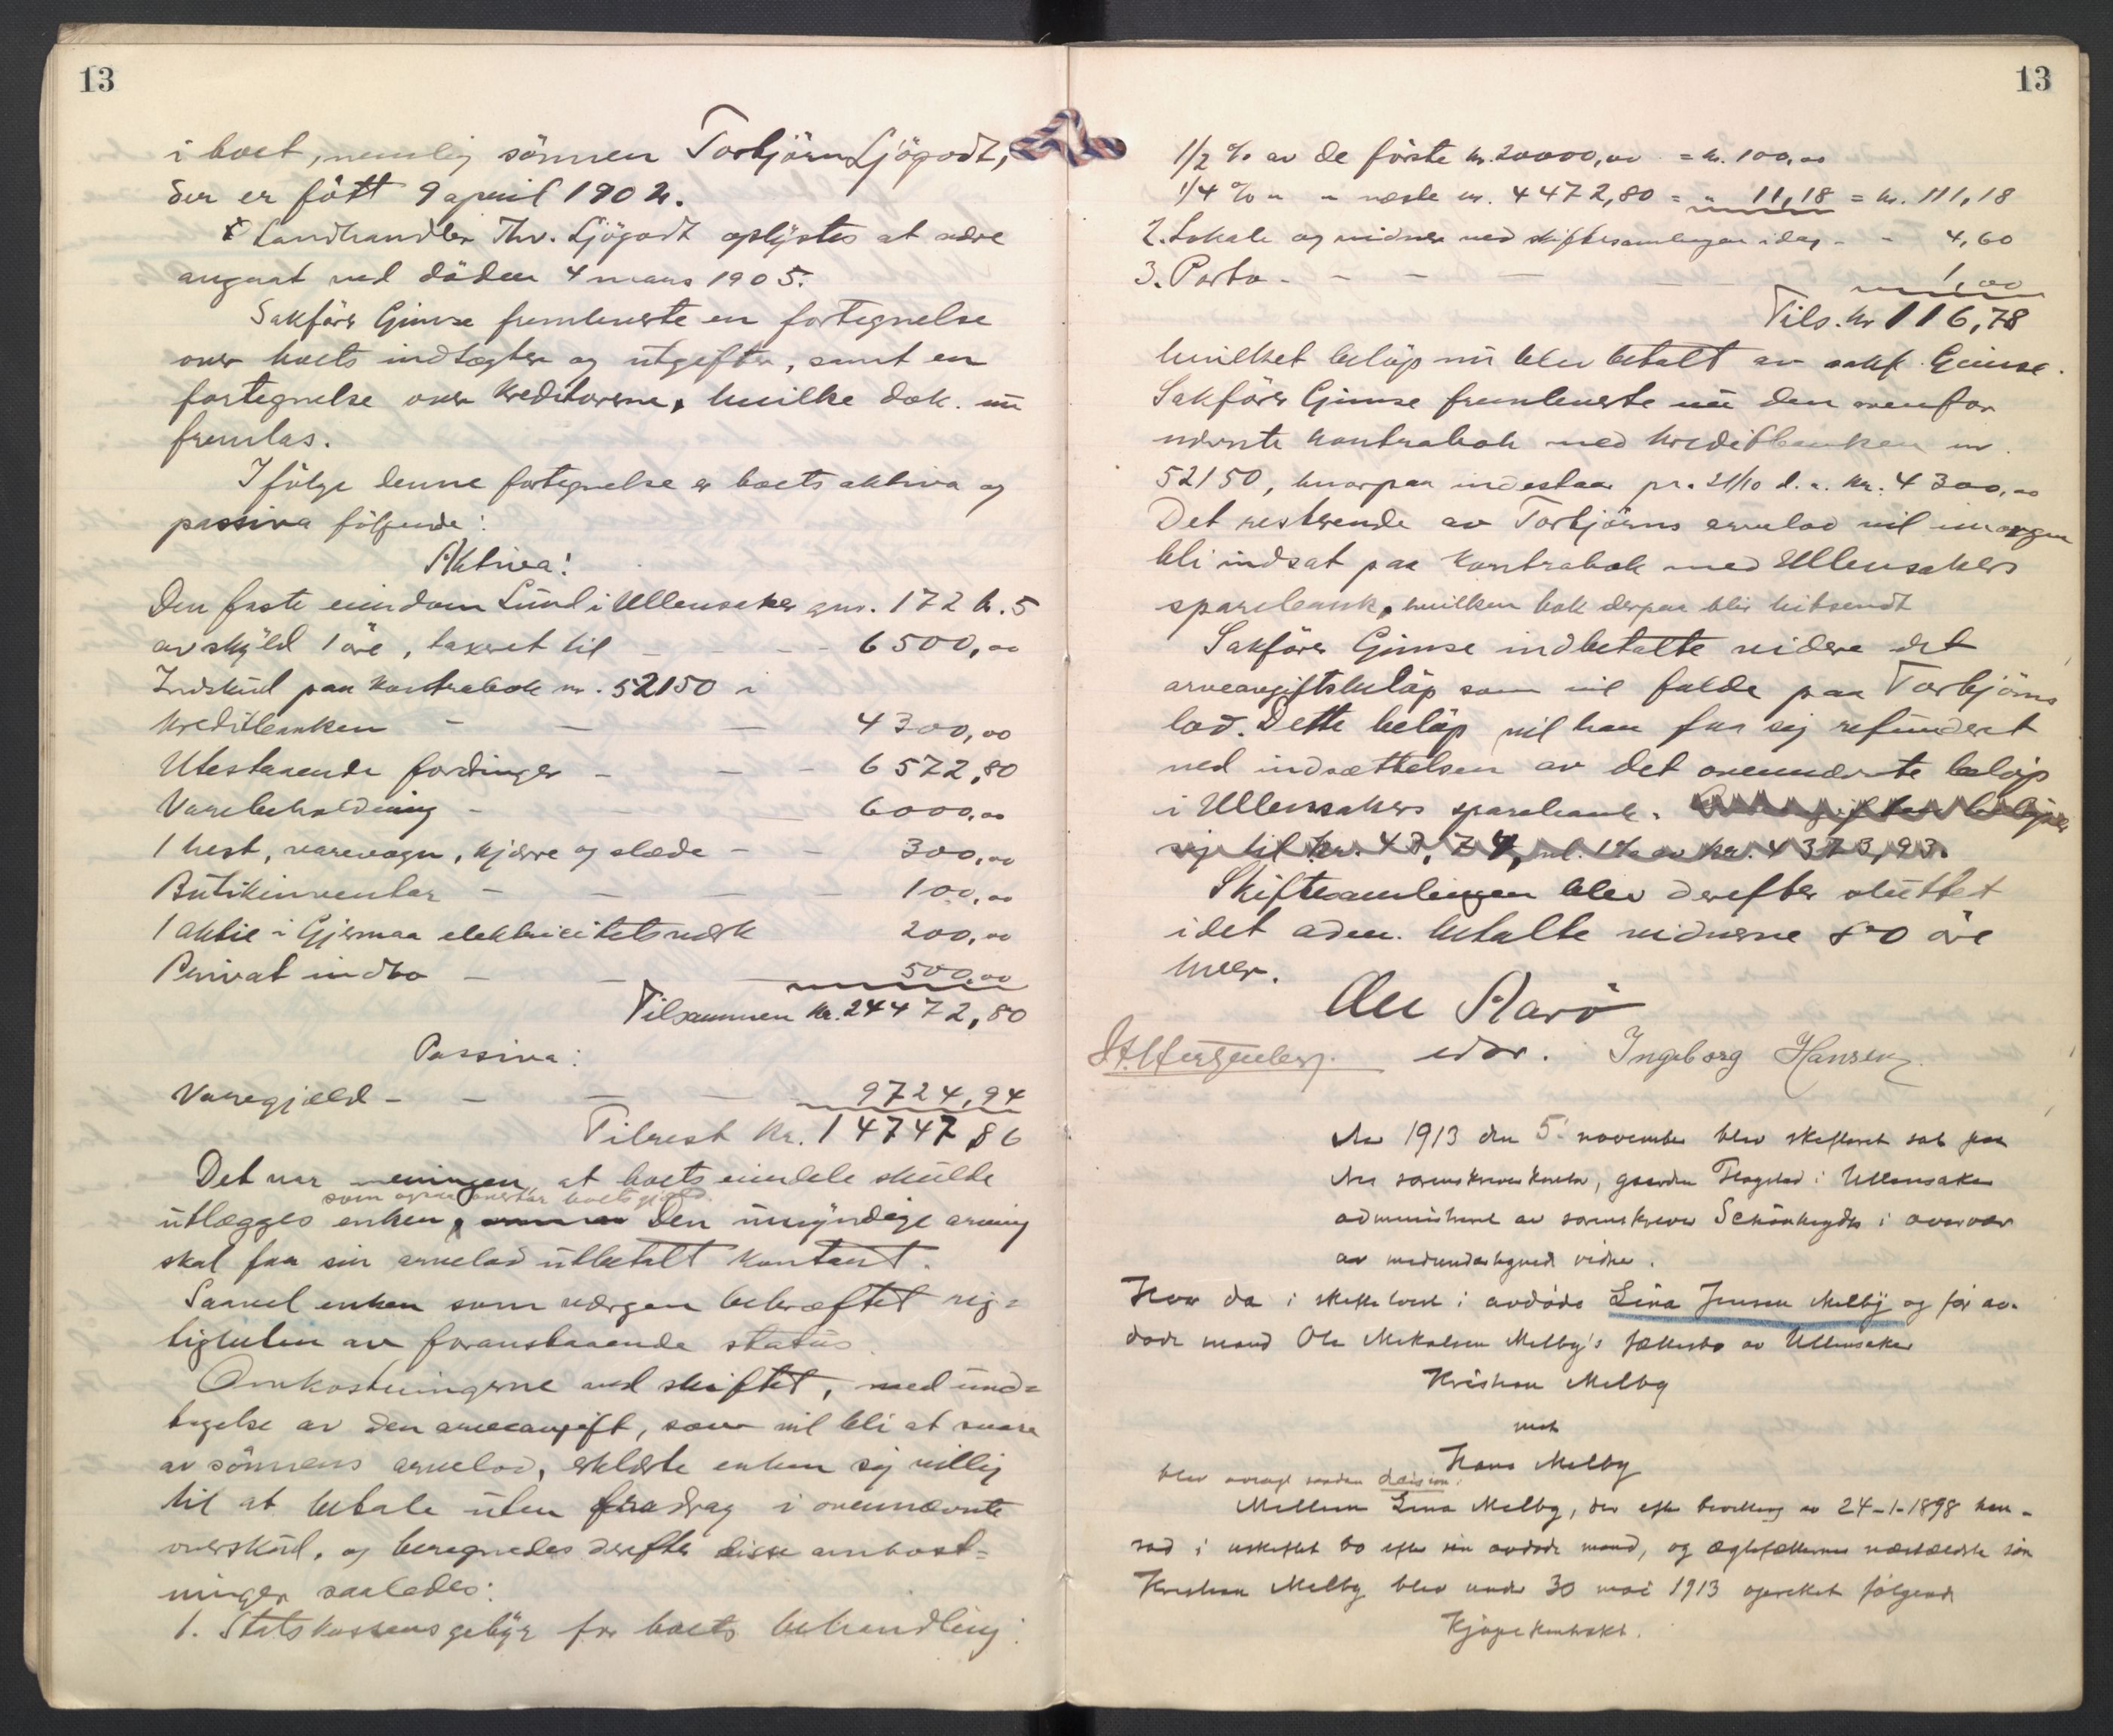 13
i boet, nemlig sönnen Torbjörn Ljögodt,
der er fött 9 april 1902.
Landhandler Thv. Ljögodt oplystes at være
angaat ved döden 4 mars 1905.
Sakförer Gimse fremleverte en fortegnelse
over boets indtægter og utgifter, samt en
fortegnelse over kreditorerne, hvilke dok. nu
fremlas.
Ifölge denne fortegnelse er boets aktiva og
passiva fölgende:
Aktiva:
Den faste eiendom Lund i Ullensaker gnr. 172 b. 5
av skyld 1 öre, taxeret til - - - - 6500,00
Indskud paa kontrabok nr. 52150 i
Kreditbanken - - - 4300,00
Utestaaende fordringer - - - 6572,80
Varebeholdning - - 6000,00
1 hest, varevogn, kjærre og slæde - - 300,00
Butikinventar - - - - 100,00
1 aktie i Gjermaa elektricitetsverk 200,00
Privat indbo - - - 500,00
Tilsammen kr. 24472,80
Passiva:
Varegjæld - - - - 9724,94
Tilrest kr. 14747,86
Det var meningen, at boets eiendele skulde
som ogsaa overtar boets gjæld.
utlægges enken, Den umyndige arving
skal faa sin arvelod utbetalt kontant.
Saavel enken som værgen bekræftet rig=
tigheten av foranstaaende status.
Omkostningerne ved skiftet, med und=
tagelse av den arveavgift, som vil bli at svare
av sönnens arvelod, erklærte enken sig villig
til at betale uten fradrag i ovennævnte
overskud, og beregnedes derefter disse omkost=
ninger saaledes:
1. Statskassens gebyr for boets behandling:
13
1/2 % av de förste kr. 20000,00 = kr. 100,00
1/4 % " - næste kr. 4472,80 = " 11,18 = kr. 111,18
2. Lokale og vidner ved skiftesamlingen idag - - 4,60
3. Porto - - - - 1,00
Tils. kr 116,78
hvilket belöp nu blev betalt av sakf. Gimse.
Sakförer Gimse fremleverte nu den ovenfor
nævnte kontrabok med Kreditbanken nr.
52150, hvorpaa indestaar pr. 21/10 d. a. kr. 4300,00
Det resterende av Torbjörns arvelod vil imorgen
bli indsat paa kontrabok med Ullensakers
sparebank, hvilken bok derpaa blir hitsendt
Sakförer Gimse indbetalte videre det
arveavgiftsbelöp som vil falde paa Torbjörns
lod. Dette belöp vil han faa sig refundert
ved indsættelsen av det ovennævnte belöp
i Ullensakers sparebank. Arveavgiften belöper
sig til kr. 43,74, nl. 1% av kr. 4373,93.
Skiftesamlingen blev derefter sluttet
idet adm. betalte vidnerne 80 öre
hver.
Aarö
edsv. Ingeborg Hansen
Aar 1913 den 5. november blev skifteret sat paa
sorenskriverkontor, gaarden Flogstad i Ullensaker
administrert av sorenskriver Schönheyder i overvær
av medundertegnede vidner.
Hvor da i skiftetvist i avdöde Lina Jensen Melby og för av-
döde mand Ole Mikalsen Melby's fællesbo av Ullensaker
Kristian Melby
mot
Hans Melby
blev avsagt saadan decision:
Mellem Lina Melby, der efter bevilling av 24-1-1898 hen-
sad i uskiftet bo efter sin avdöde mand, og ægtefællernes næstældste sön
Kristian Melby blev under 30 mai 1913 oprettet fölgende
Kjöpekontrakt.